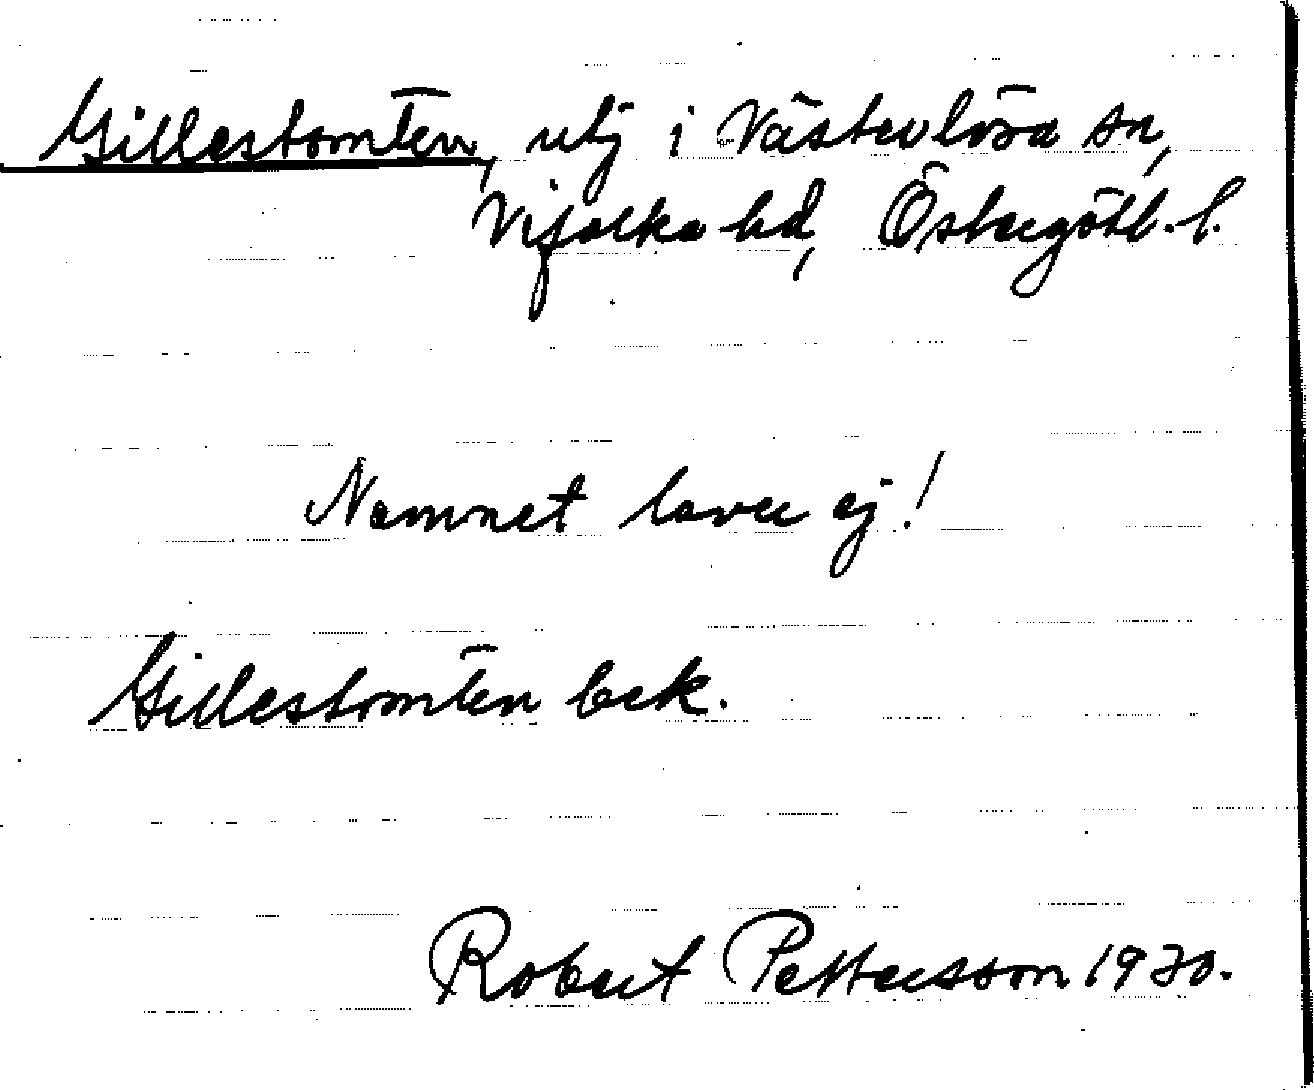 Gillestomten, utj i Västerlösa sn,
Vifolka hd, Östergötl. l.
Namnet lever ej!
Gillestomten bek.
Robert Pettersson 1930.